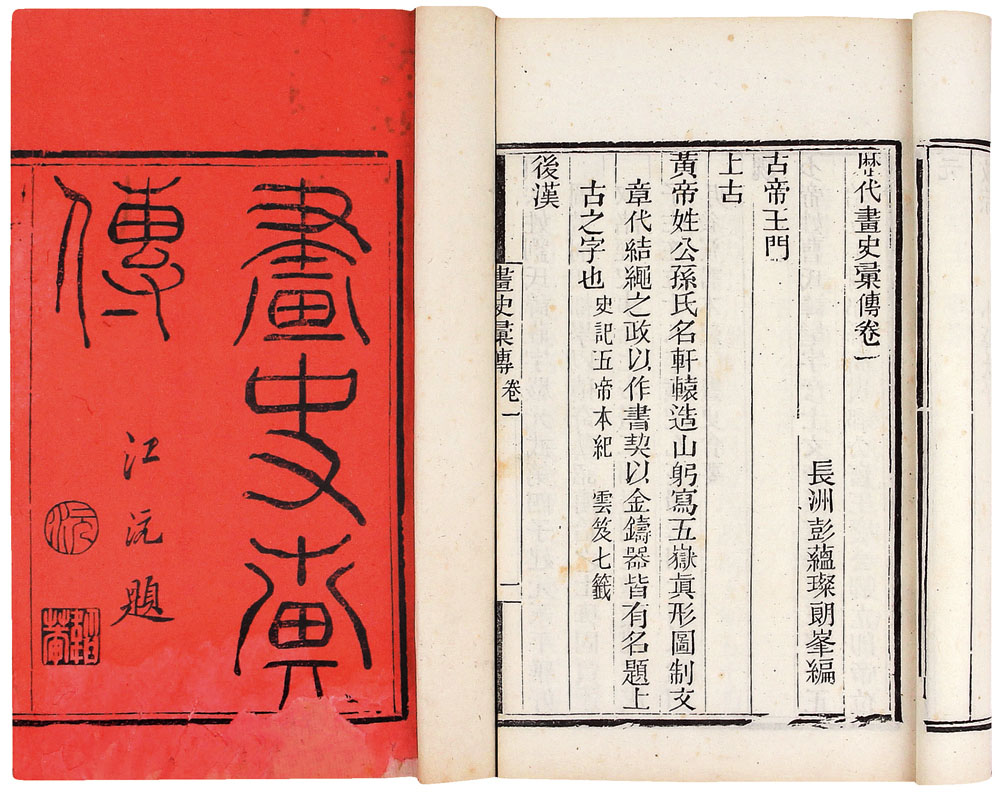 厯代畫史彙傳卷一
長洲彭蘊璨朗峯編
古帝王門
上古
黃帝姓公孫氏名軒轅造山躬寫五嶽眞形圖制文
章代結繩之政以作書契以金鑄器皆有名題上
古之字也 史記五帝本紀 雲笈七籤
後漢
畫史彙傳 卷一 一
畫史彙
傳
江沅題
沅